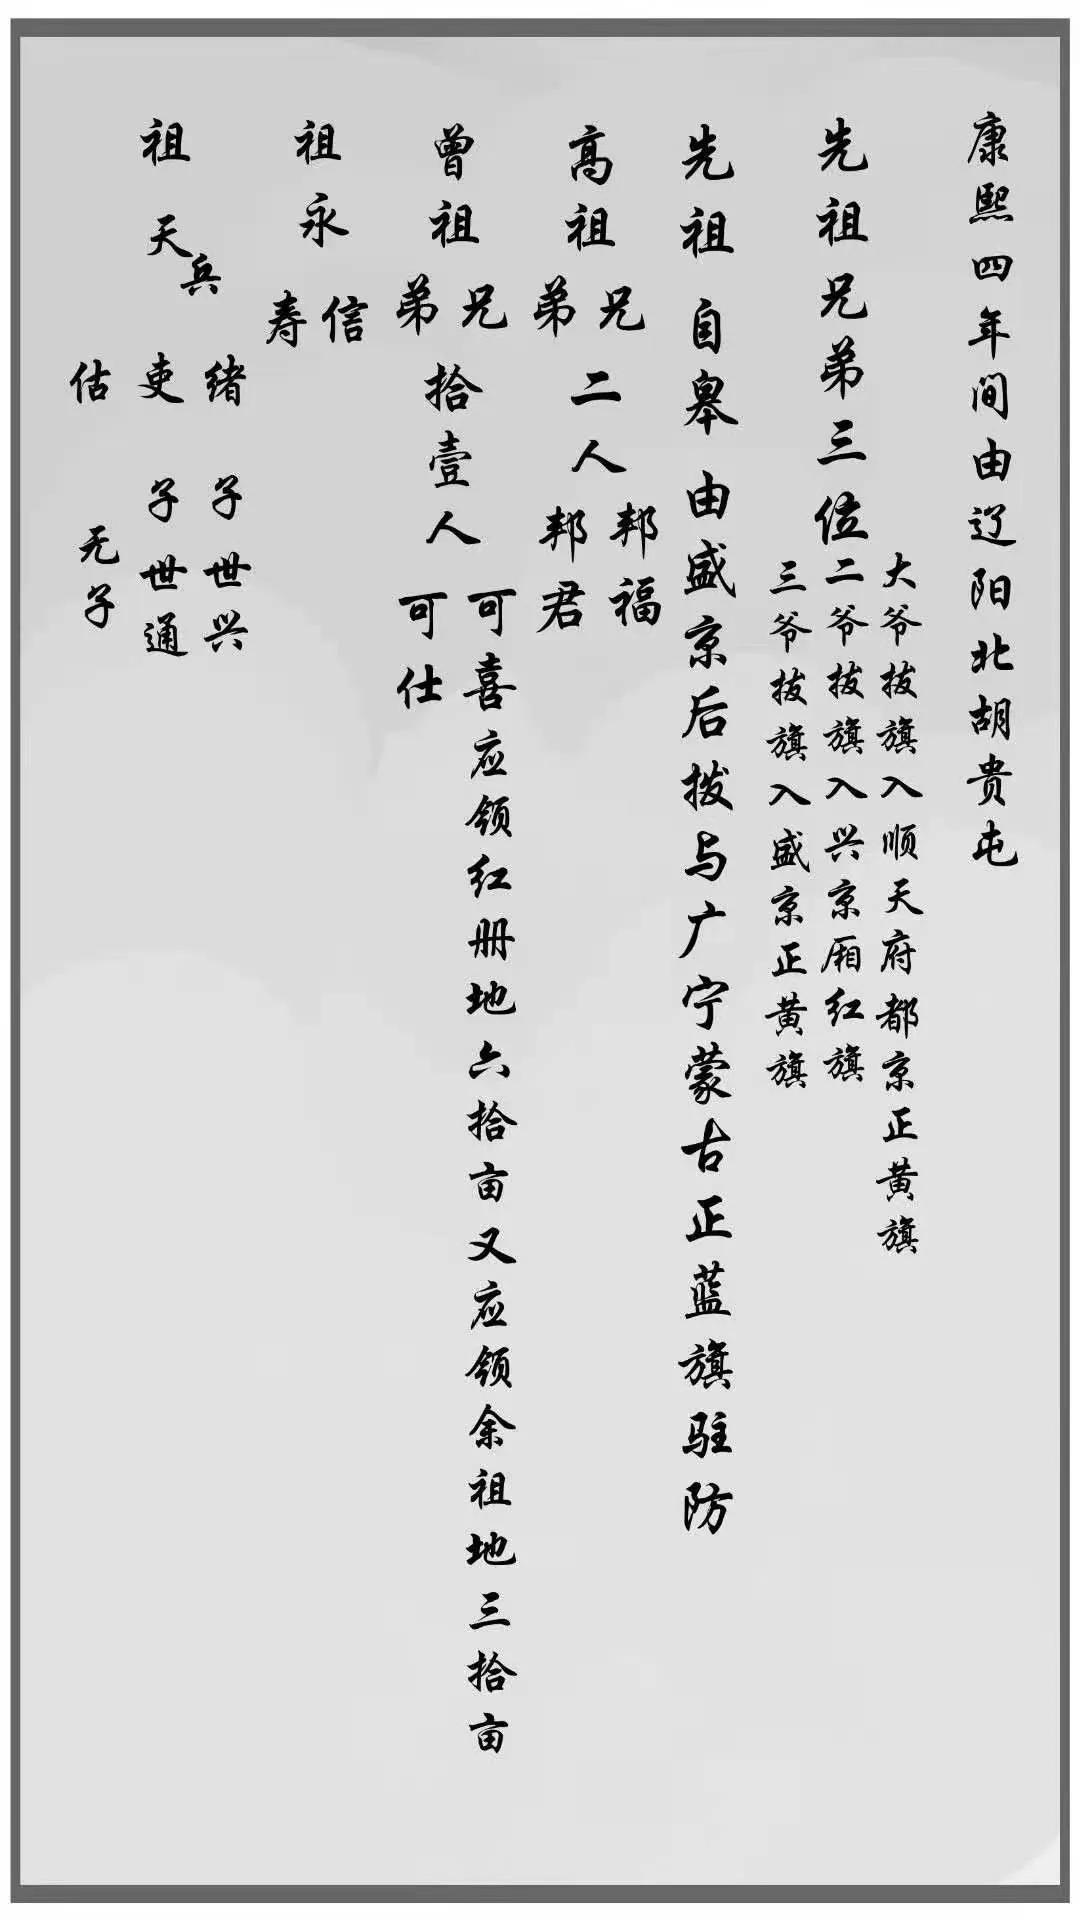 康熙四年间由辽阳北胡贵屯
先祖兄弟三位
大爷拔旗入顺天府都京正黄旗
二爷拔旗入兴京厢红旗
三爷拔旗入盛京正黄旗
先祖 自皋 由盛京后拨与广宁蒙古正蓝旗驻防
高祖兄弟二人
邦福
邦君
曾祖兄弟拾壹人
可喜应领红册地六拾亩又应领余祖地三拾亩
可仕
祖永信
寿
祖天兵
绪 子世兴
吏 子世通
估 无子